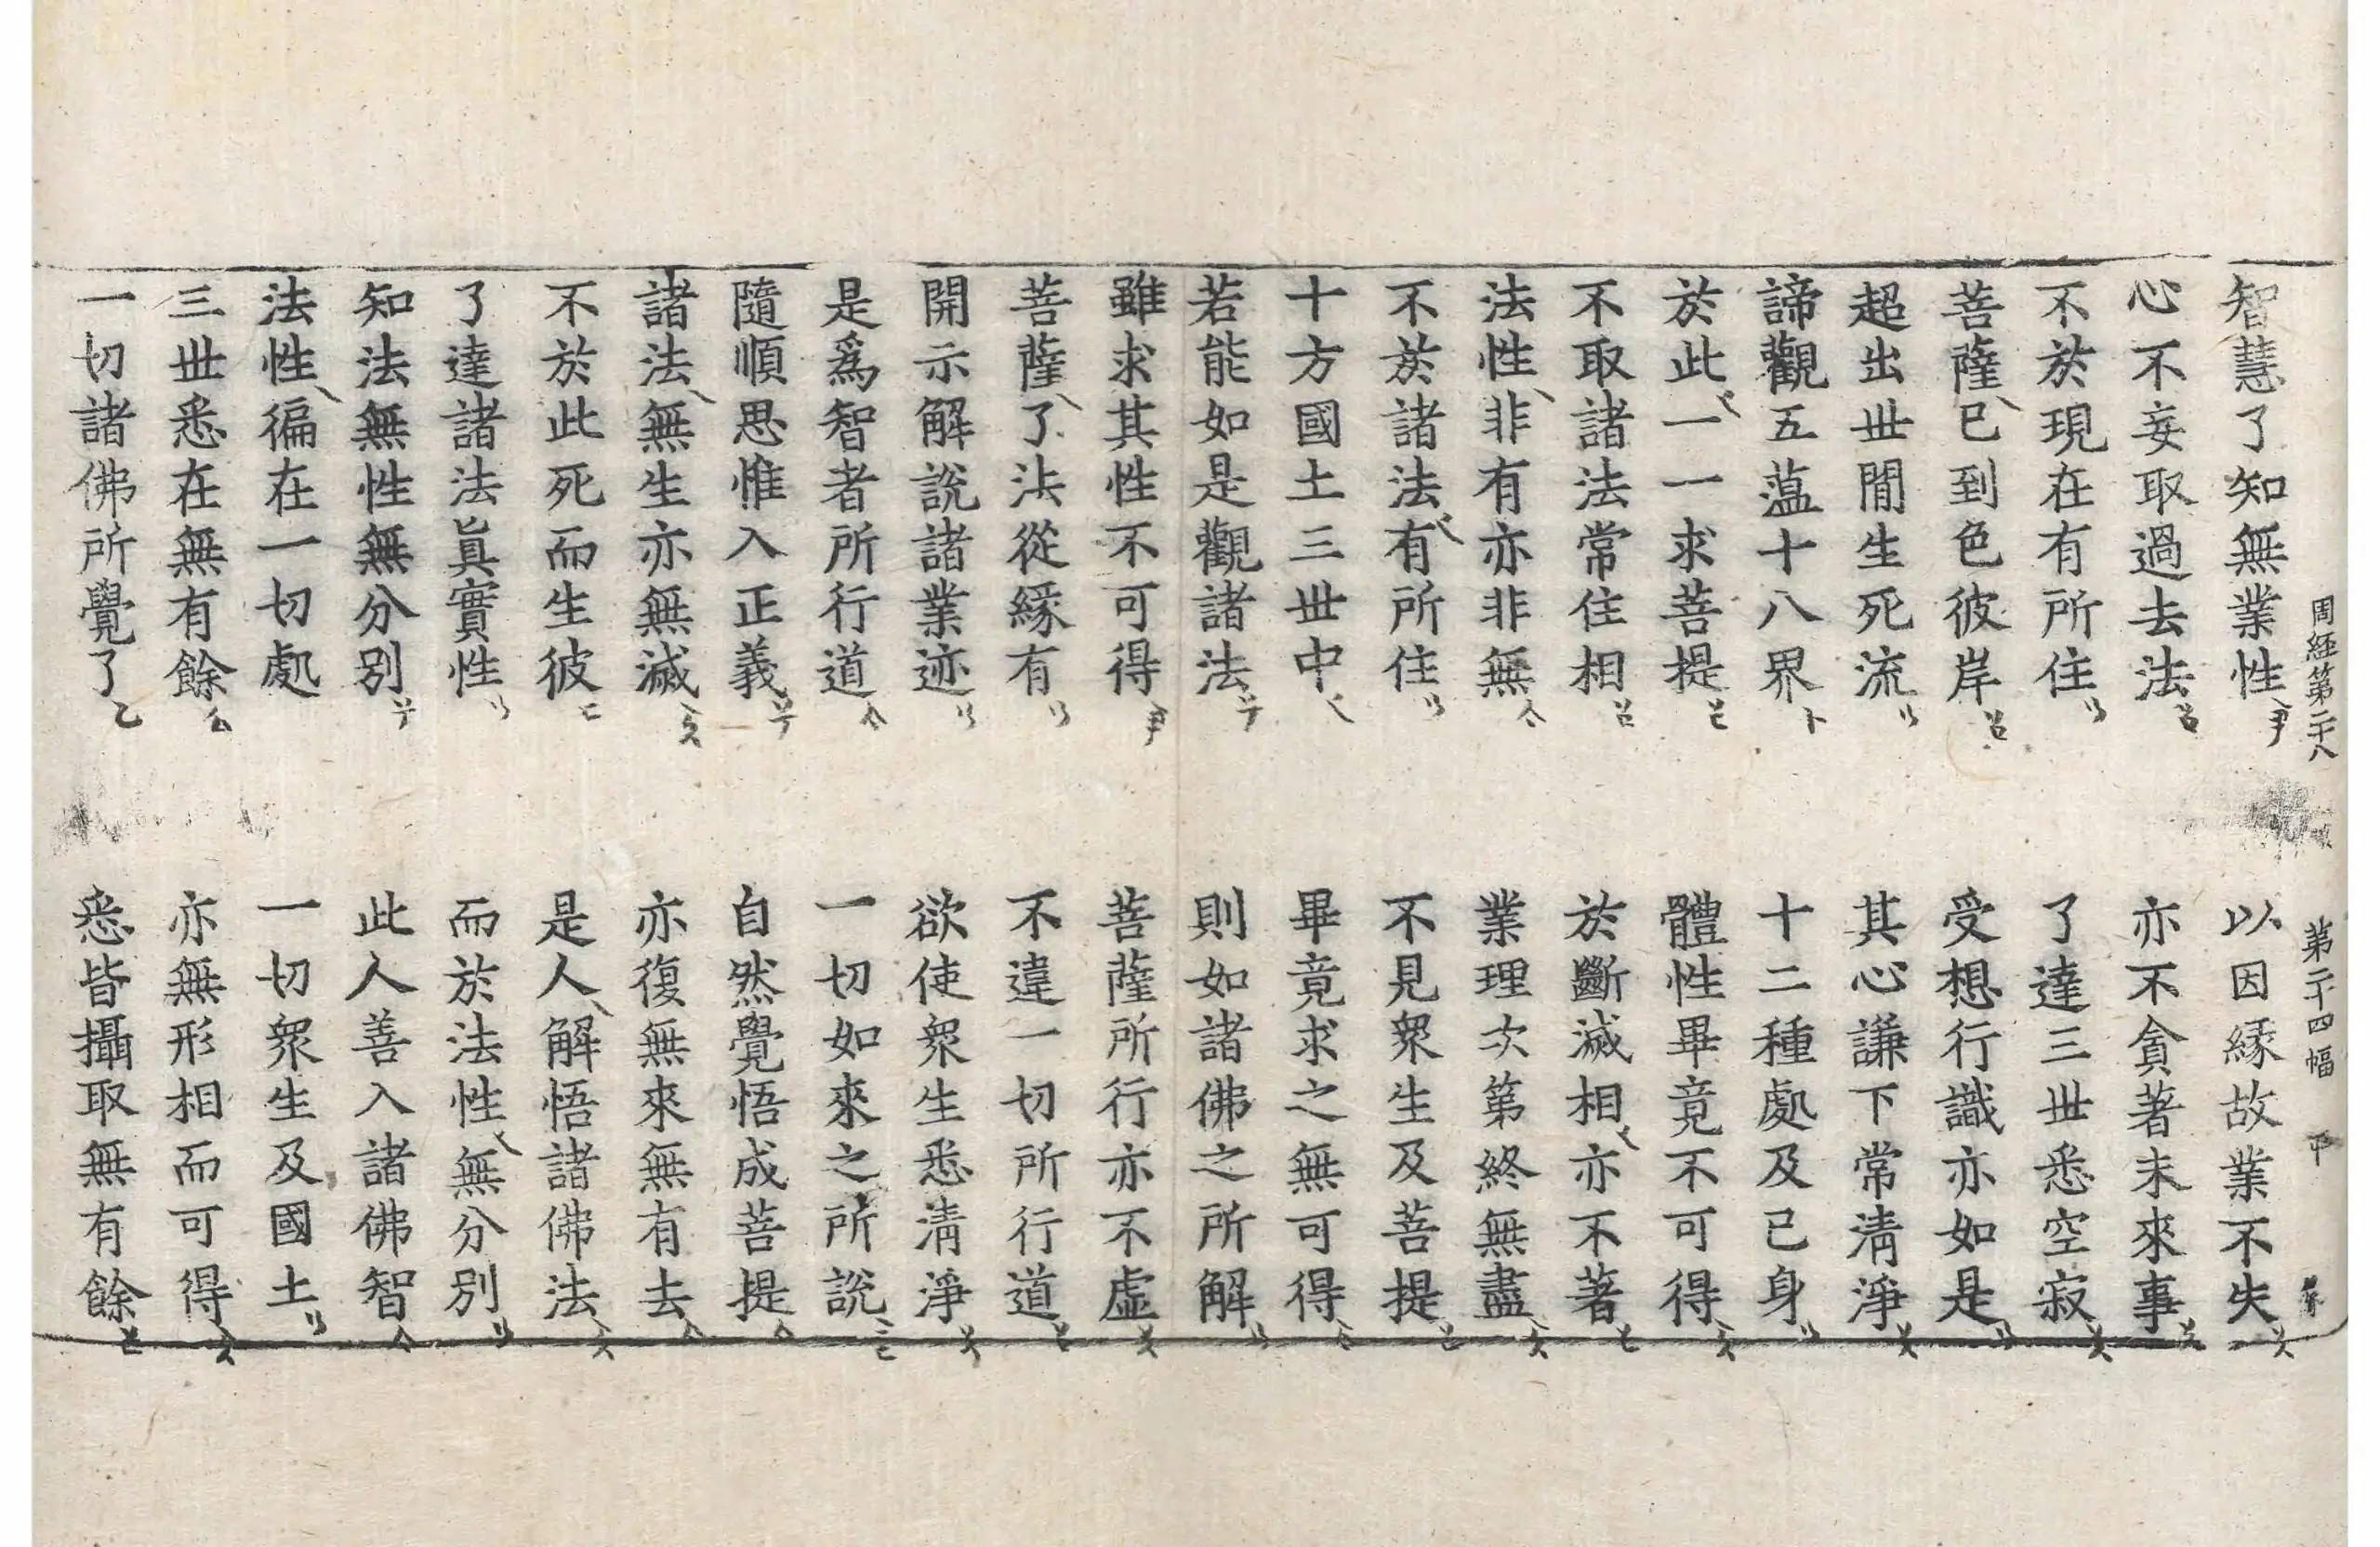 周経第二十八　第二十四幅
智慧了知無業性　以因緣故業不失
心不妄取過去法　亦不貪著未來事
不於現在有所住　了達三世悉空寂
菩薩已到色彼岸　受想行識亦如是
超出世間生死流　其心謙下常清淨
諦觀五蘊十八界　十二種處及己身
於此一一求菩提　體性畢竟不可得
不取諸法常住相　於斷滅相亦不著
法性非有亦非無　業理次第終無盡
不於諸法有所住　不見衆生及菩提
十方國土三世中　畢竟求之無可得
若能如是觀諸法　則如諸佛之所解
雖求其性不可得　菩薩所行亦不虛
菩薩了法從緣有　不違一切所行道
開示解說諸業迹　欲使衆生悉清淨
是爲智者所行道　一切如來之所說
隨順思惟入正義　自然覺悟成菩提
諸法無生亦無滅　亦復無來無有去
不於此死而生彼　是人解悟諸佛法
了達諸法眞實性　而於法性無分別
知法無性無分別　此人善入諸佛智
法性徧在一切處　一切衆生及國土
三世悉在無有餘　亦無形相而可得
一切諸佛所覺了　悉皆攝取無有餘